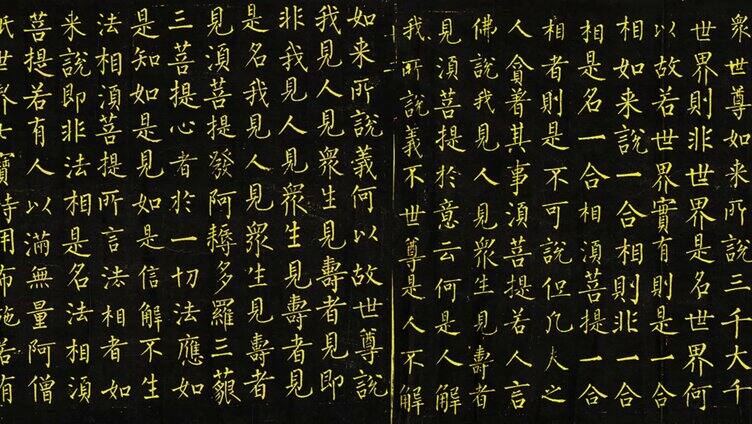 衆世尊如来所說三千大千
世界則非世界是名世界何
以故若世界實有則是一合
相如来說一合相則非一合
相是名一合相須菩提一合
相者則是不可說但凡夫之
人貪著其事須菩提若人言
佛說我見人見衆生見壽者
見須菩提於意云何是人解
我所說義不世尊是人不解
如来所說義何以故世尊說
我見人見衆生見壽者見即
非我見人見衆生見壽者見
是名我見人見衆生見壽者
見須菩提發阿耨多羅三藐
三菩提心者於一切法應如
是知如是見如是信解不生
法相須菩提所言法相者如
来說即非法相是名法相須
菩提若有人以滿無量阿僧
祇世界七寶持用布施若有